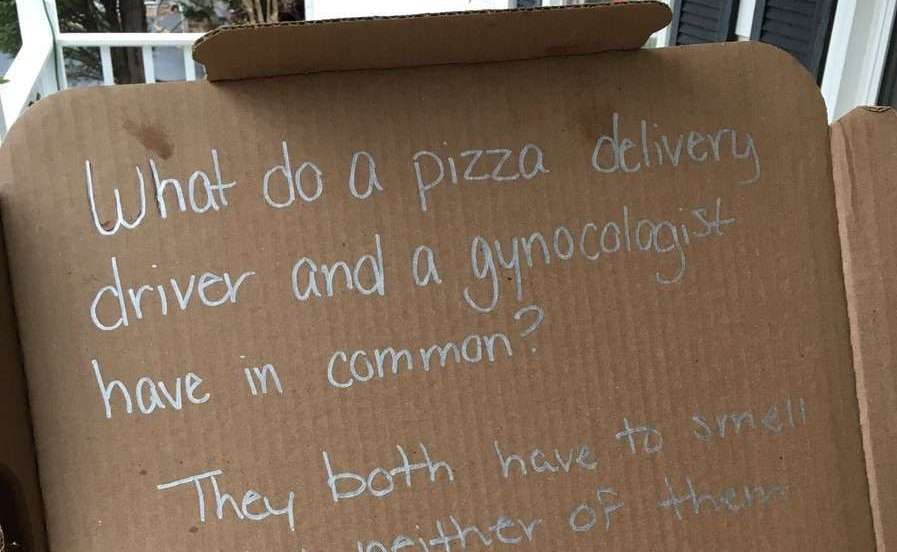 What do a pizza delivery
driver and a gynocologist
have in common?
They both have to smell
neither of them